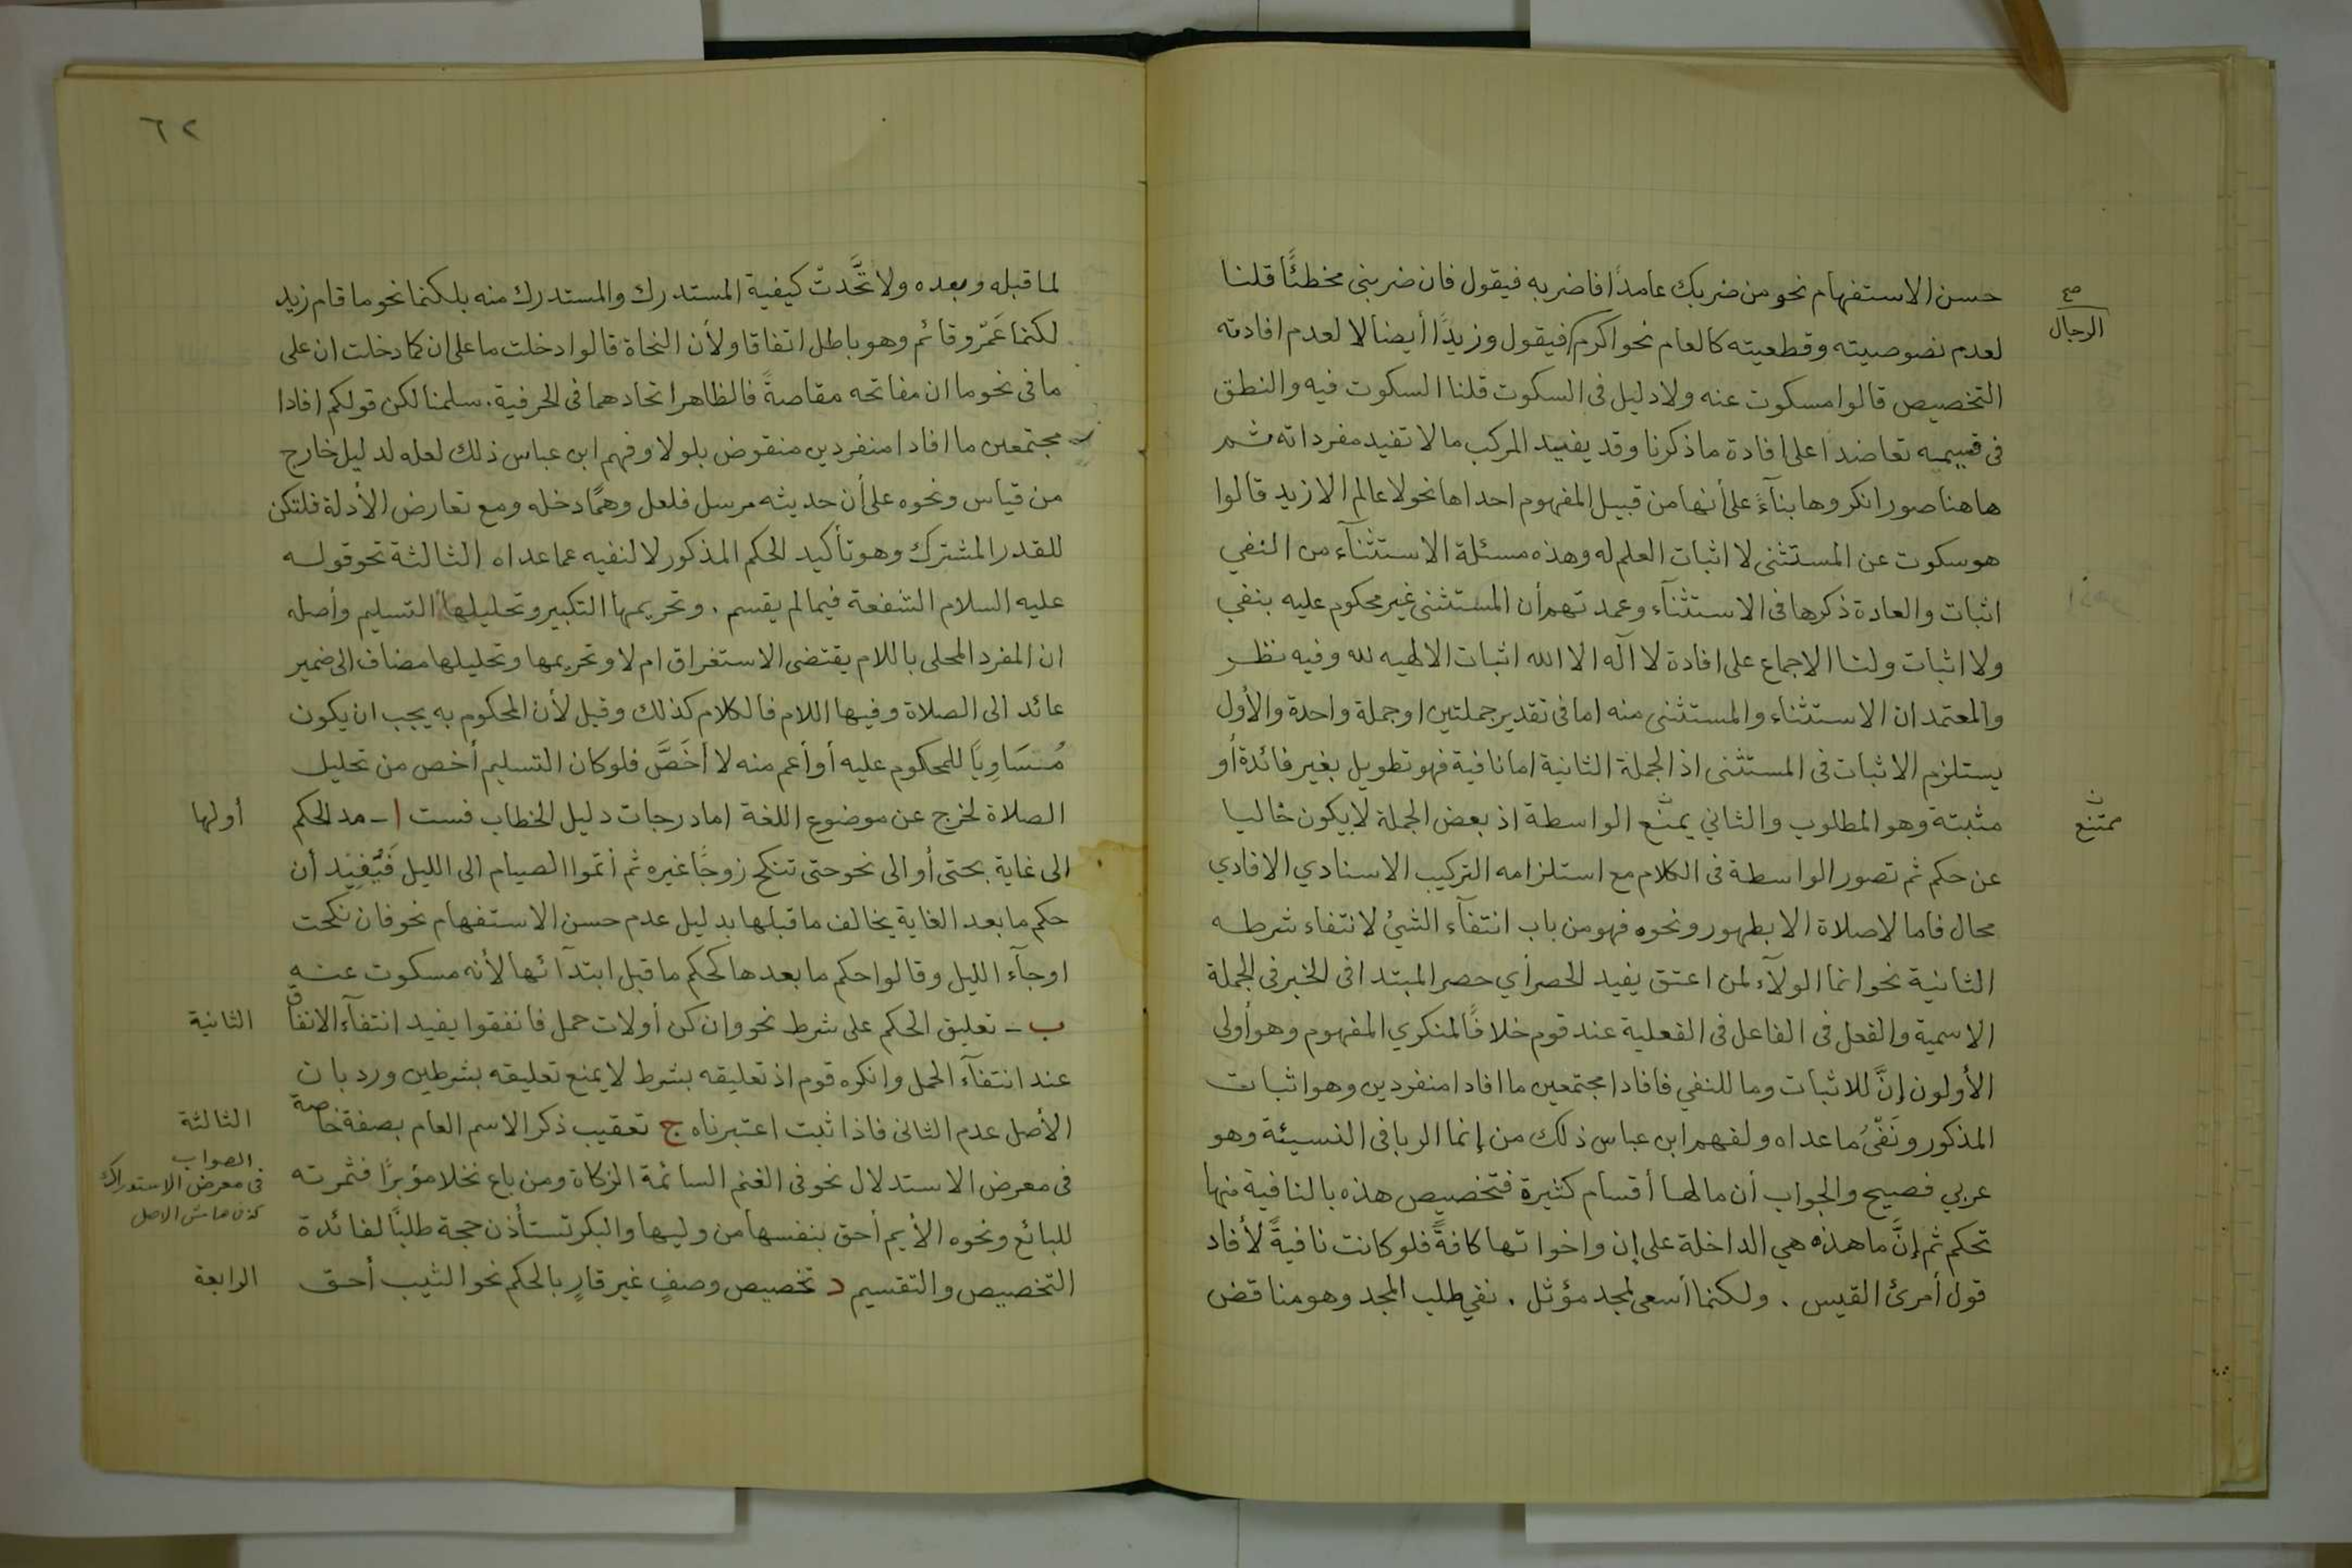 حسن الاستفهام نحو من ضربك عامدًا فاضربه فيقول فان ضربني مخطئًا قلنا
صح
الرجال
لعدم نصوصيته وقطعيته كالعام نحو اكرم فيقول وزيدًا أيضا لا لعدم افادته
التخصيص قالوا مسكوت عنه ولا دليل في السكوت قلنا السكوت فيه والنطق
في قسيميه تعاضدا على افادة ما ذكرنا وقد يفيد المركب ما لا تفيد مفرداته ثم
هاهنا صور انكروها بنآءً على أنها من قبيل المفهوم احداها نحو لا عالم الا زيد قالوا
هو سكوت عن المستثنى لا اثبات العلم له وهذه مسئلة الاستثنآء من النفي
اثبات والعادة ذكرها في الاستثنآء وعمدتهم أن المستثنى غير محكوم عليه بنفي
ولا اثبات ولنا الاجماع على افادة لا آله الا الله اثبات الالهيه لله وفيه نظر
والمعتمد ان الاستثناء والمستثنى منه اما في تقدير جملتين او جملة واحدة والأول
يستلزم الاثبات في المستثنى اذ الجملة الثانية اما نافية فهو تطويل بغير فائدة أو
مثبتة وهو المطلوب والثاني يمنع الواسطة اذ بعض الجملة لا يكون خاليا
ن
ممتنع
عن حكم ثم تصور الواسطة في الكلام مع استلزامه التركيب الاسنادي الافادي
محال فاما لا صلاة الا بطهور ونحوه فهو من باب انتفآء الشيئ لانتفاء شرطه
الثانية نحو انما الولآء لمن اعتق يفيد الحصر أي حصر المبتدا في الخبر في الجملة
الاسمية والفعل في الفاعل في الفعلية عند قوم خلافًا لمنكري المفهوم وهو أولى
الأولون إنَّ للاثبات وما للنفي فافادا مجتمعين ما افادا منفردين وهو اثبات
المذكور ونَفْيُ ما عداه ولفهم ابن عباس ذلك من إنما الربا في النسيئة وهو
عربي فصيح والجواب أن ما لها أقسام كثيرة فتخصيص هذه بالنافية منها
تحكم ثم إنَّ ما هذه هي الداخلة على إن واخواتها كافةً فلو كانت نافيةً لأفاد
قول أمرئ القيس . ولكنما أسعى لمجد مؤثل . نفي طلب المجد وهو مناقض
٦٢
لما قبله وبعده ولاتَّحدتْ كيفية المستدرك والمستدرك منه بلكنما نحو ما قام زيد
لكنما عَمْرو قائم وهو باطل اتفاقا ولأن النحاة قالوا دخلت ما على ان كما دخلت ان على
ما في نحو ما ان مفاتحه مقاصةً فالظاهر اتحادهما في الحرفية . سلمنا لكن قولكم افادا
مجتمعين ما افادا منفردين منقوض بلولا وفهم ابن عباس ذلك لعله لدليل خارج
من قياس ونحوه على أن حديثه مرسل فلعل وهمًا دخله ومع تعارض الأدلة فلتكن
للقدر المشترك وهو تأكيد الحكم المذكور لا لنفيه عما عداه الثالثة نحو قوله
عليه السلام الشفعة فيما لم يقسم . وتحريمها التكبير وتحليلها التسليم وأصله
ان المفرد المحلى باللام يقتضى الاستغراق ام لا وتحريمها وتحليلها مضاف الى ضمير
عائد الى الصلاة وفيها اللام فالكلام كذلك وقيل لأن المحكوم به يجب ان يكون
مُسَاوِيًا للمحكوم عليه أو أعم منه لا أخَصَّ فلو كان التسليم أخص من تحليل
الصلاة لخرج عن موضوع اللغة اما درجات دليل الخطاب فست ا - مد الحكم
أولها
الى غاية بحتى أو الى نحو حتى تنكح زوجًا غيره ثم أتموا الصيام الى الليل فَيُفِيد أن
حكم ما بعد الغاية يخالف ما قبلها بدليل عدم حسن الاستفهام نحو فان نكحت
او جآء الليل وقالوا حكم ما بعدها كحكم ما قبل ابتدآئها لأنه مسكوت عنه
ب - تعليق الحكم على شرط نحو وان كن أولات حمل فانفقوا يفيد انتفآء الانفاق
الثانية
عند انتفآء الحمل وانكره قوم اذ تعليقه بشرط لا يمنع تعليقه بشرطين ورد بان
الأصل عدم الثانى فاذا ثبت اعتبرناه ج تعقيب ذكر الاسم العام بصفة خاصة
الثالثة
في معرض الاستدلال نحو في الغنم السائمة الزكاة ومن باع نخلا مؤبرًا فثمرته
الصواب
في معرض الاستدراك
كذا في هامش الاصل
للبائع ونحوه الأيم أحق بنفسها من وليها والبكر تستأذن حجة طلبًا لفائدة
التخصيص والتقسيم د تخصيص وصفٍ غير قارٍ بالحكم نحو الثيب أحق
الرابعة